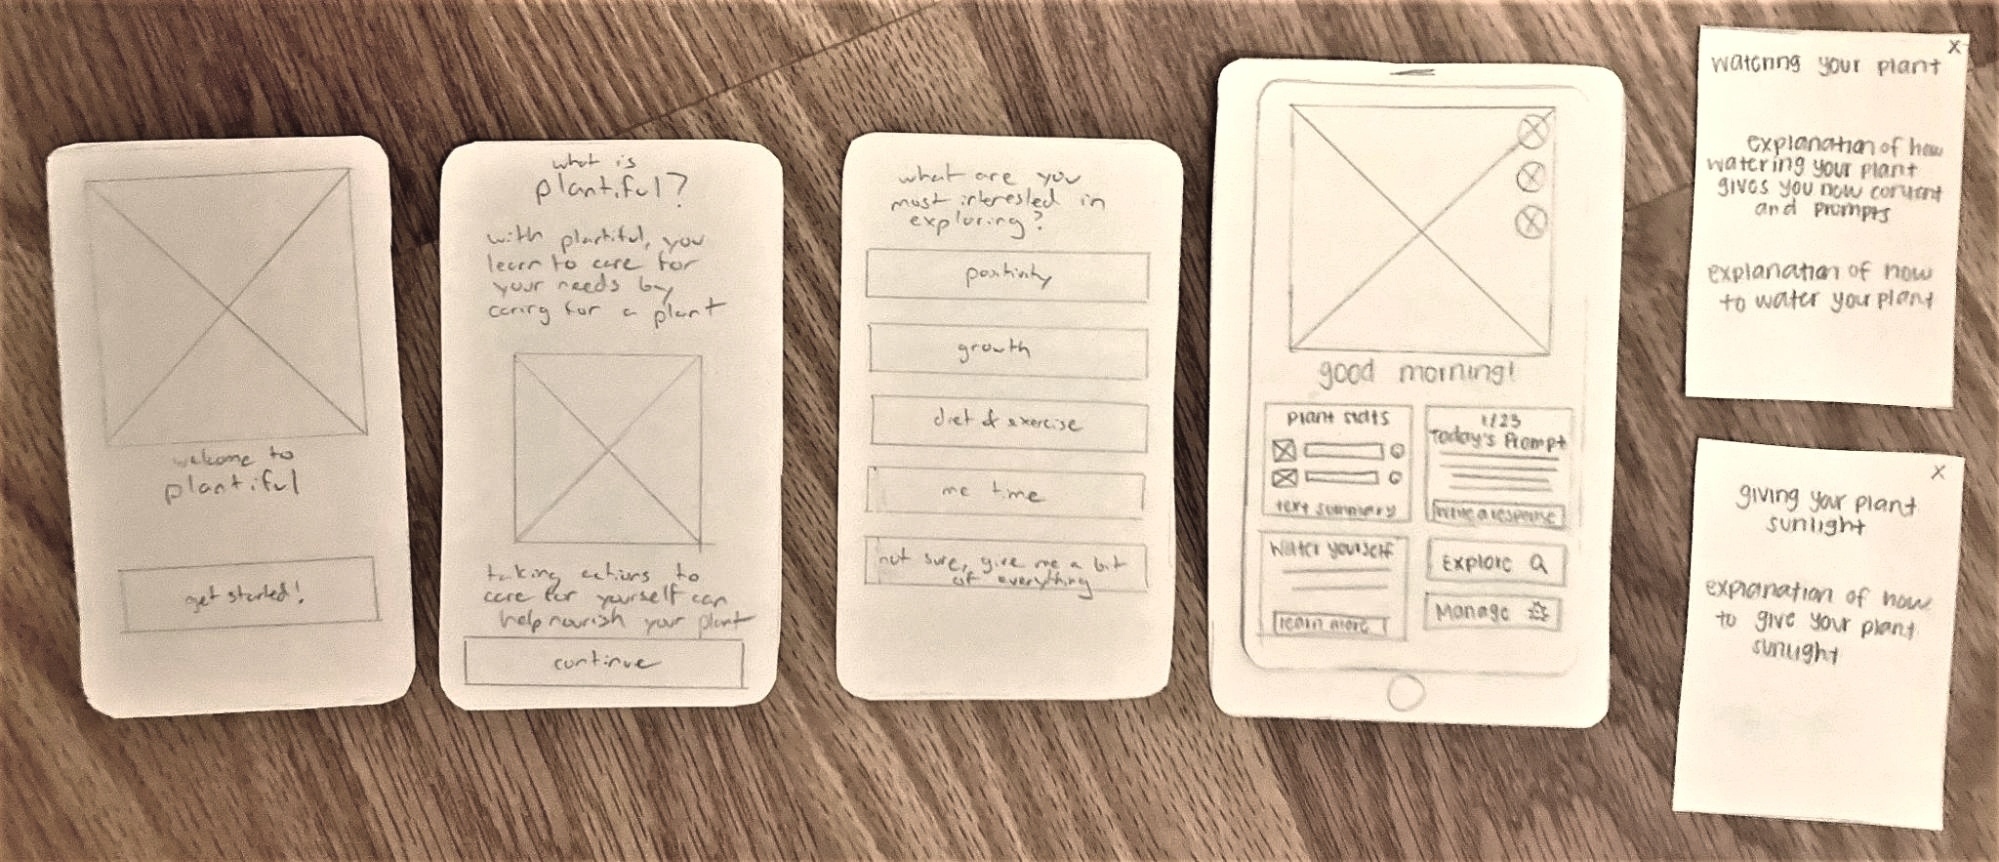 welcome to
plantiful
get started!
what is
plantiful?
with plantiful, you
learn to care for
your needs by
caring for a plant
taking actions to
care for yourself can
help nourish your plant
continue
what are you
most interested in
exploring?
positivity
growth
diet & exercise
me time
not sure, give me a bit
of everything
good morning!
Plant stats
text summary
1/23
Today's Prompt
Write a response
Water yourself
learn more
Explore
Manage
X
watering your plant
explanation of how
watering your plant
gives you new content
and prompts
explanation of how
to water your plant
X
giving your plant
sunlight
explanation of how
to give your plant
sunlight